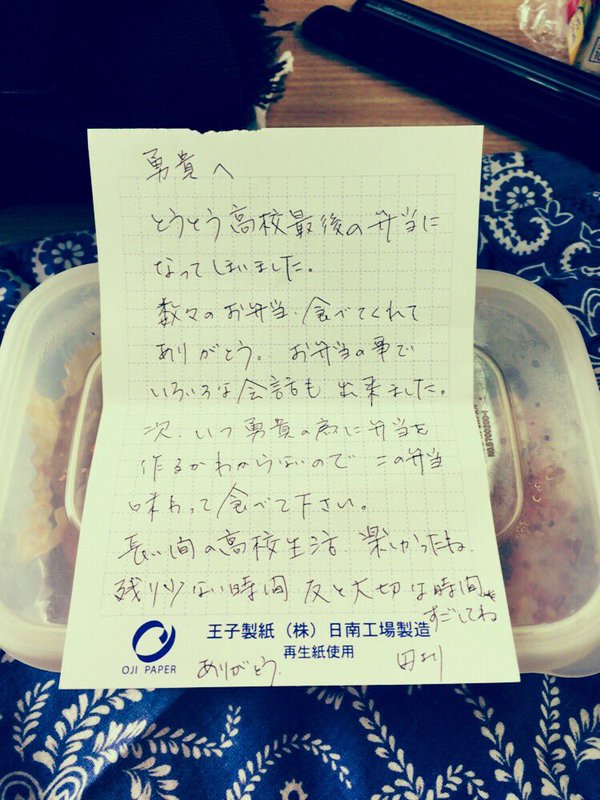 勇貴へ
とうとう高校最後の弁当に
なってしまいました。
数々のお弁当、食べてくれて
ありがとう。お弁当の事で
いろいろな会話も出来ました。
次、いつ勇貴の為に弁当を
作るかわからないので この弁当
味わって食べて下さい。
長い間の高校生活 楽しかったね
残り少ない時間 友と大切な時間を
すごしてね
王子製紙（株）日南工場製造
再生紙使用
OJI PAPER
ありがとう。
母より